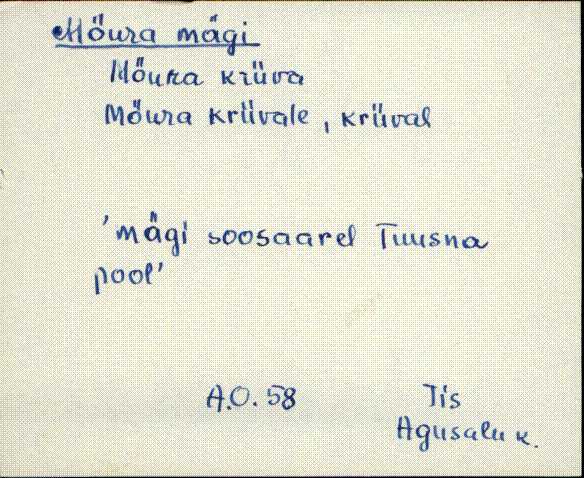 Mõura mägi
Mõura krüva
Mõura krüvale, krüval
'mägi soosaarel Tuusna
pool'
A.O. 58
Iis
Agusalu k.